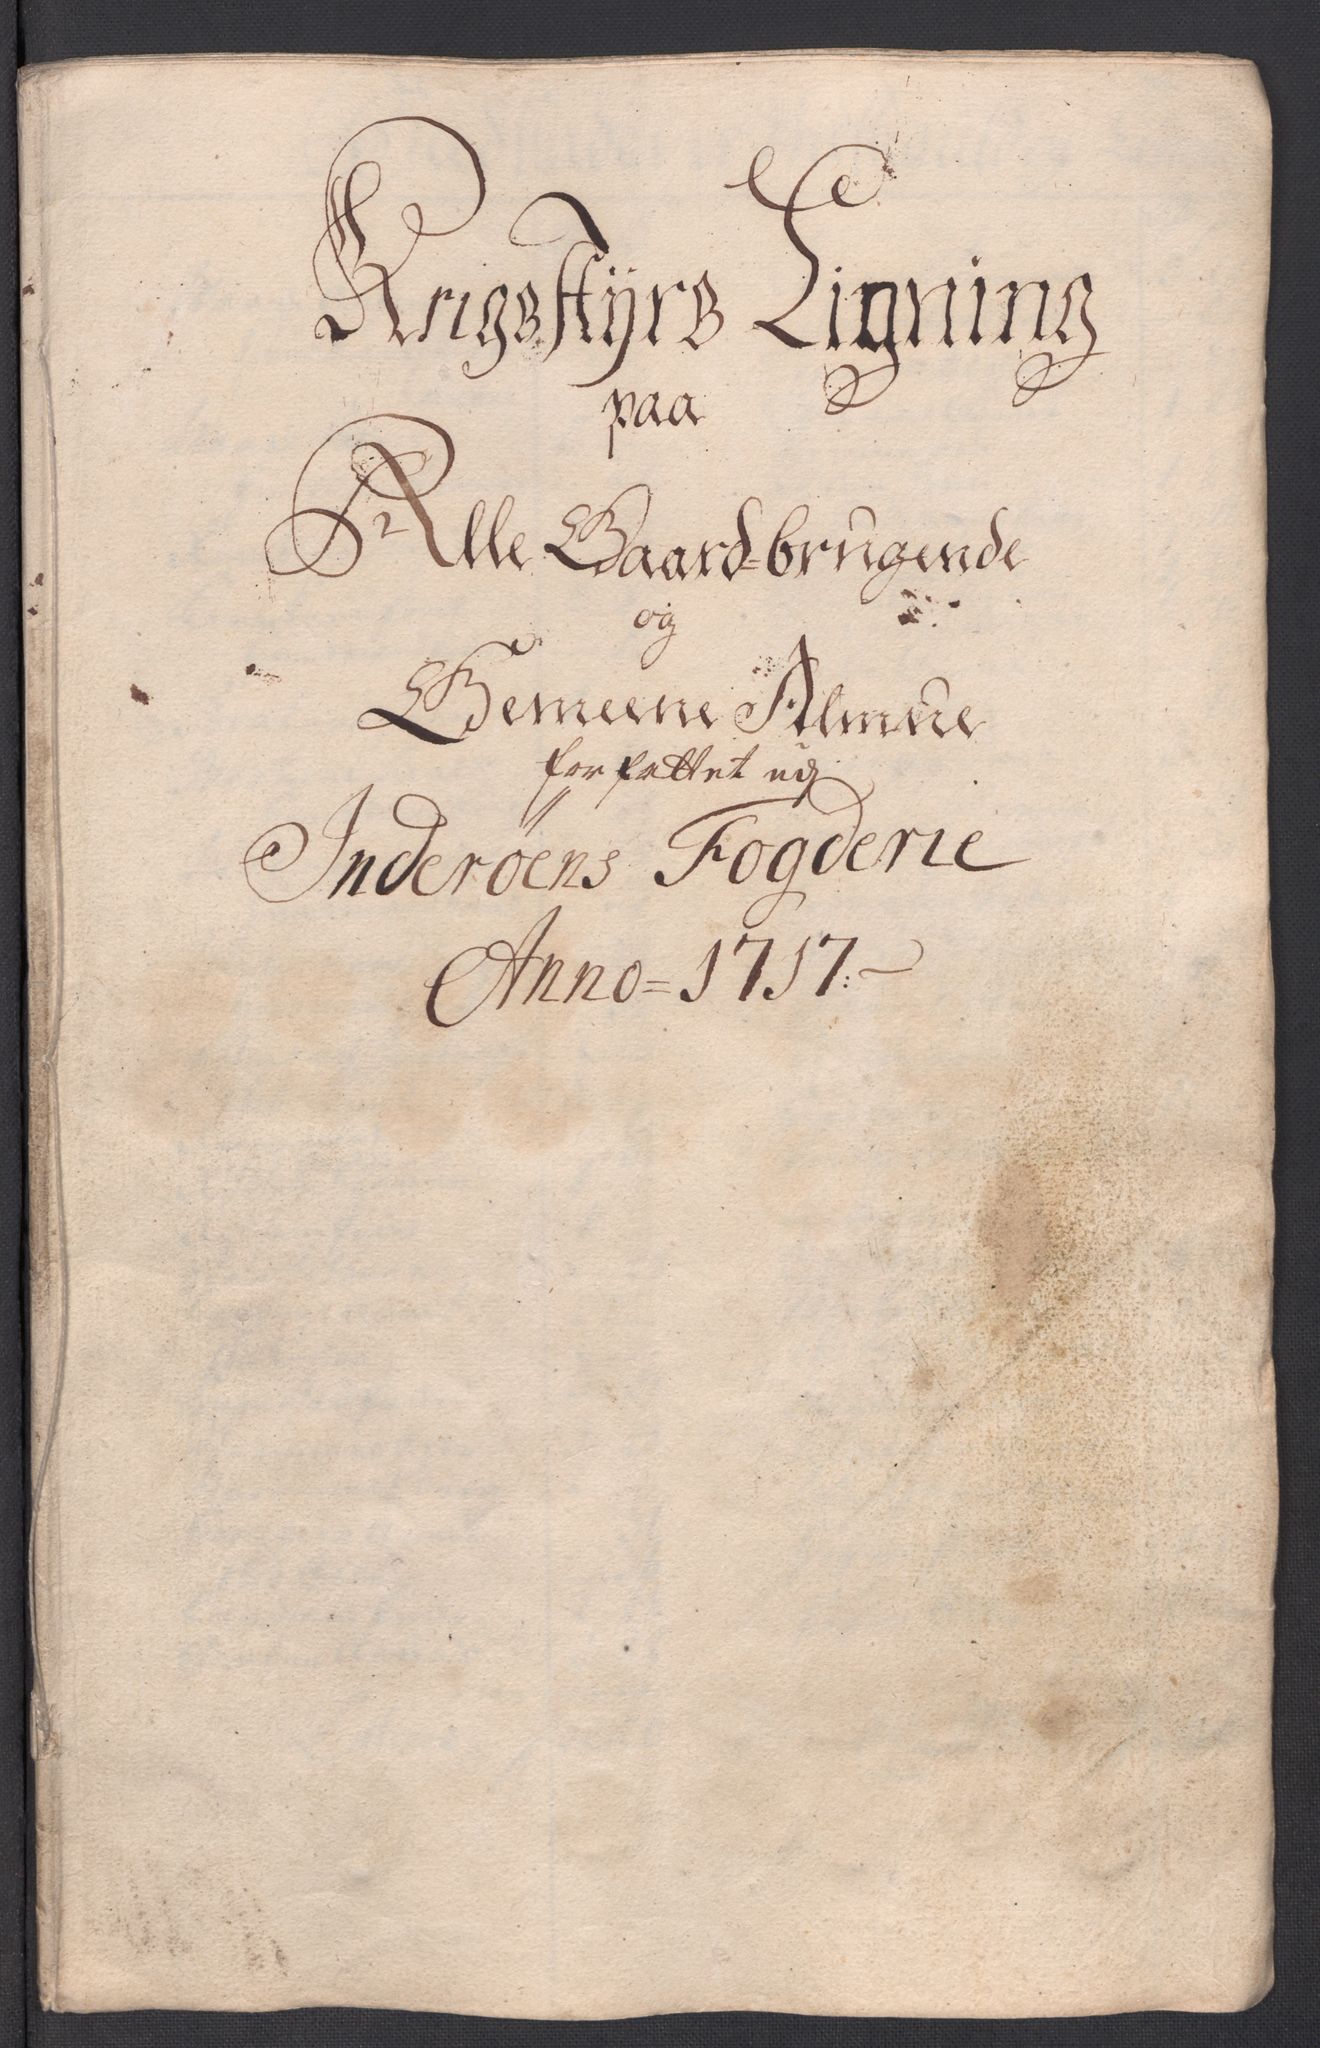 Krigsstyrs Ligning
paa
Alle Gaard=brugende
og
Gemeene Almue
forfattet udj
Inderøens Fogderie
Anno=1717: